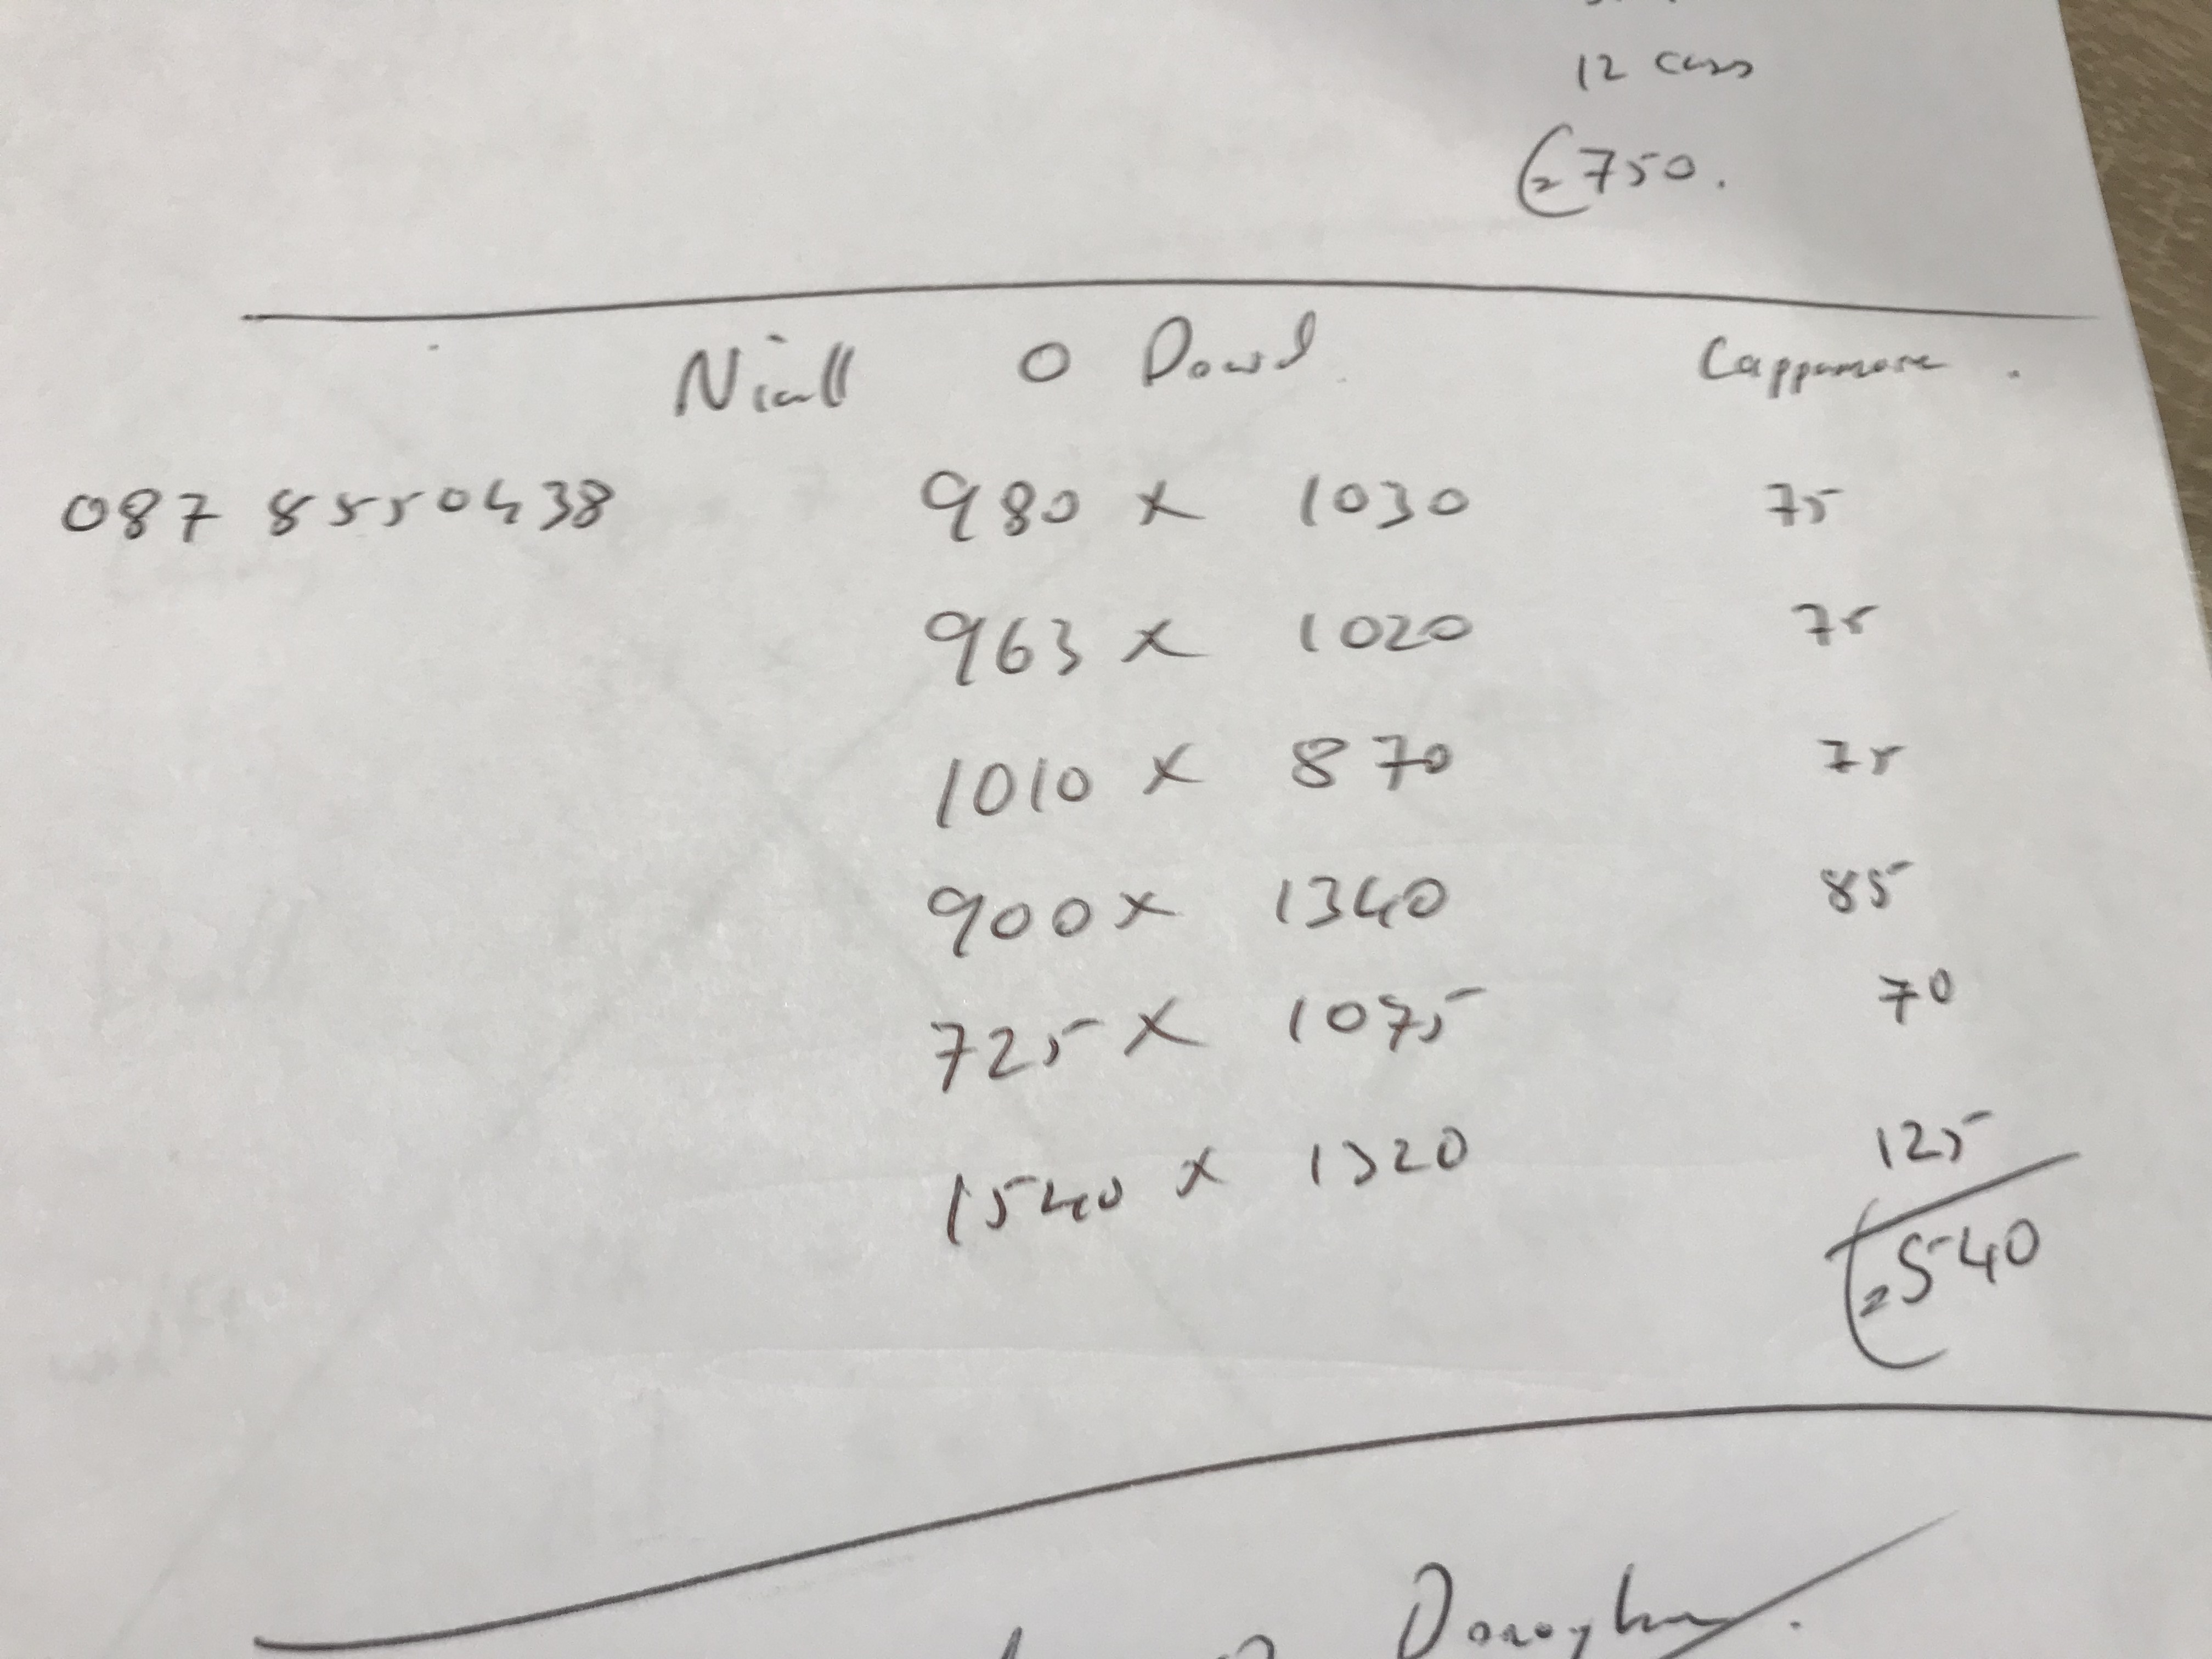 12 cass
€750.
Niall O Dowd. Cappamore.
087 8550438 980 x 1030 75
963 x 1020 75
1010 x 870 75
900 x 1340 85
725 x 1075 70
1540 x 1320 125
€540